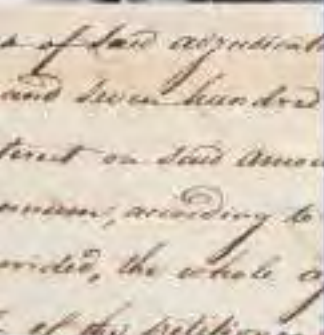 of said adjudicat
and seven hundred
terest on said amou
nnum, according to
ovided, the whole o
of the petitioner